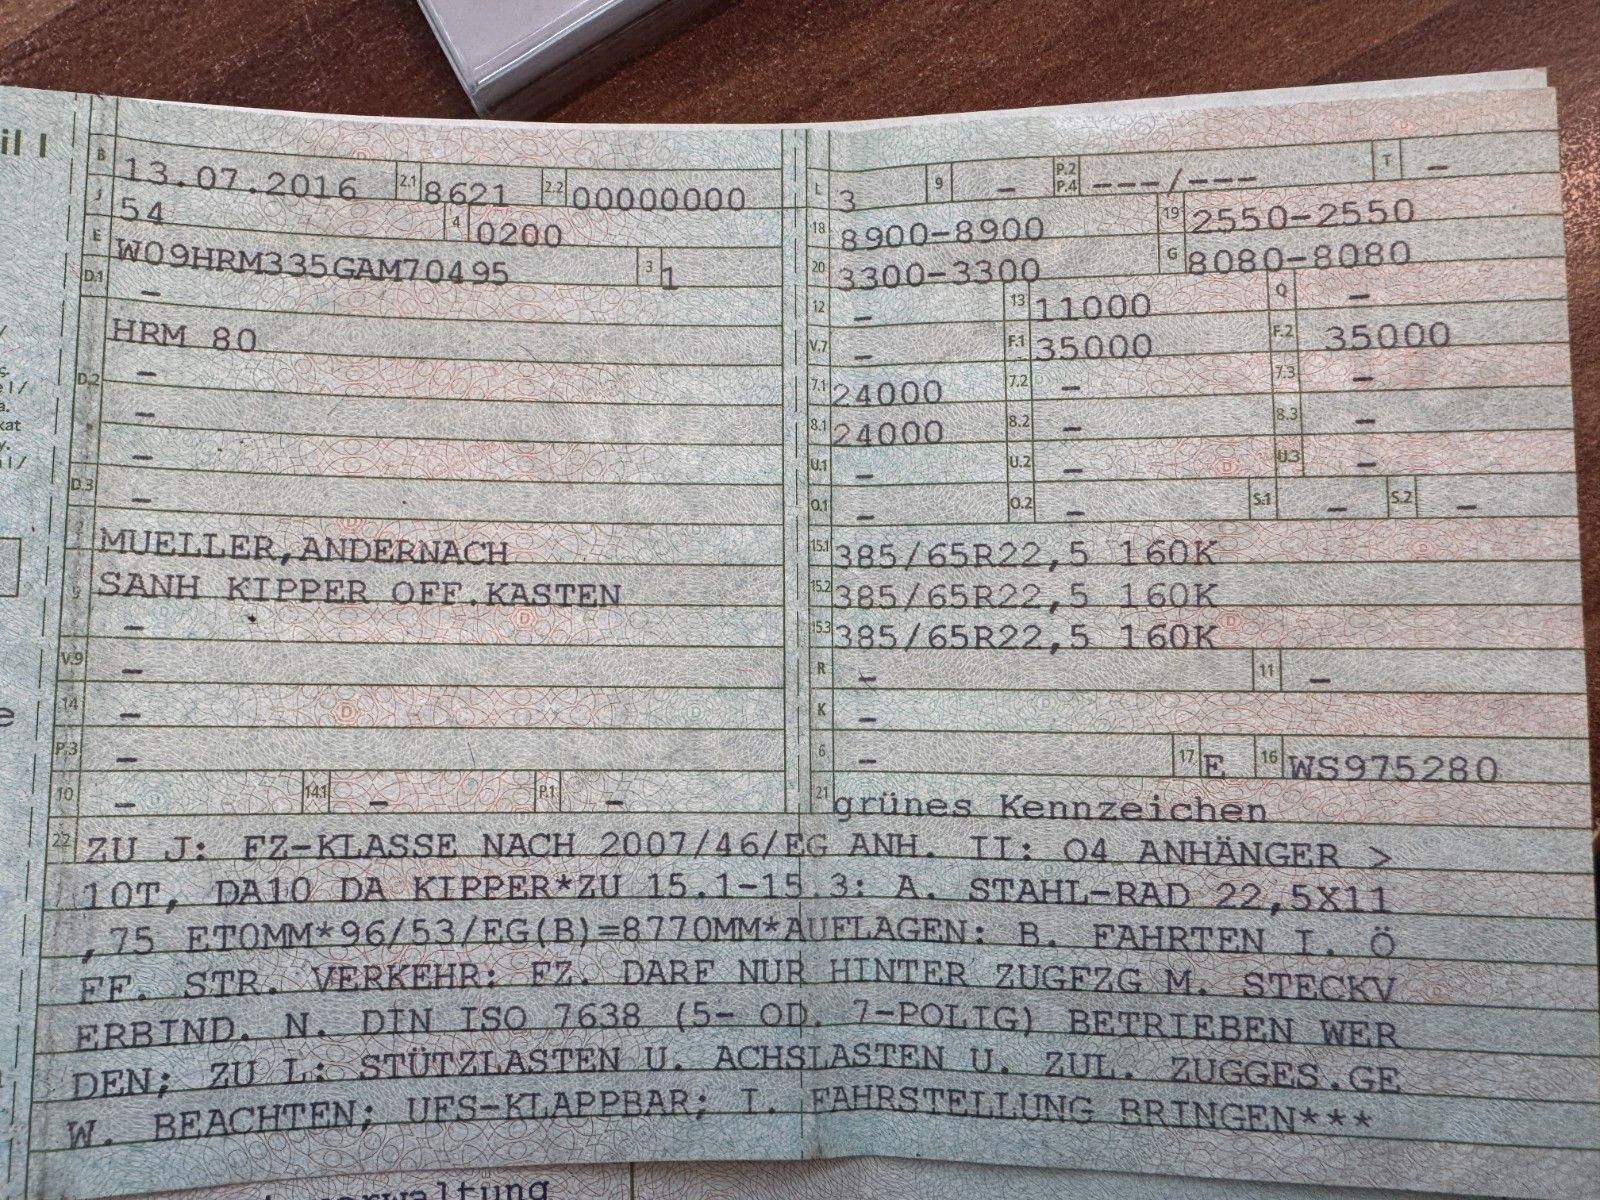 il I
B 13.07.2016 2.1 8621 2.2 00000000
J 54 4 0200
E W09HRM335GAM70495 3 1
D.1 –
HRM 80
D.2 –
–
–
D.3 –
MUELLER,ANDERNACH
SANH KIPPER OFF.KASTEN
–
V.9 –
14 –
P.3 –
10 – 14.1 – P.1 –
L 3 9 – P.2 P.4 ---/--- T –
18 8900-8900 19 2550-2550
20 3300-3300 G 8080-8080
12 – 13 11000 Q –
V.7 – F.1 35000 F.2 35000
7.1 24000 7.2 – 7.3 –
8.1 24000 8.2 – 8.3 –
U.1 – U.2 – U.3 –
O.1 – O.2 – S.1 – S.2 –
15.1 385/65R22,5 160K
15.2 385/65R22,5 160K
15.3 385/65R22,5 160K
R – 11 –
K –
6 – 17 E 16 WS975280
21 grünes Kennzeichen
22 ZU J: FZ-KLASSE NACH 2007/46/EG ANH. II: O4 ANHÄNGER >
10T, DA10 DA KIPPER*ZU 15.1-15.3: A. STAHL-RAD 22,5X11
,75 ET0MM*96/53/EG(B)=8770MM*AUFLAGEN: B. FAHRTEN I. Ö
FF. STR. VERKEHR: FZ. DARF NUR HINTER ZUGFZG M. STECKV
ERBIND. N. DIN ISO 7638 (5- OD. 7-POLIG) BETRIEBEN WER
DEN; ZU L: STÜTZLASTEN U. ACHSLASTEN U. ZUL. ZUGGES.GE
W. BEACHTEN; UFS-KLAPPBAR; I. FAHRSTELLUNG BRINGEN***